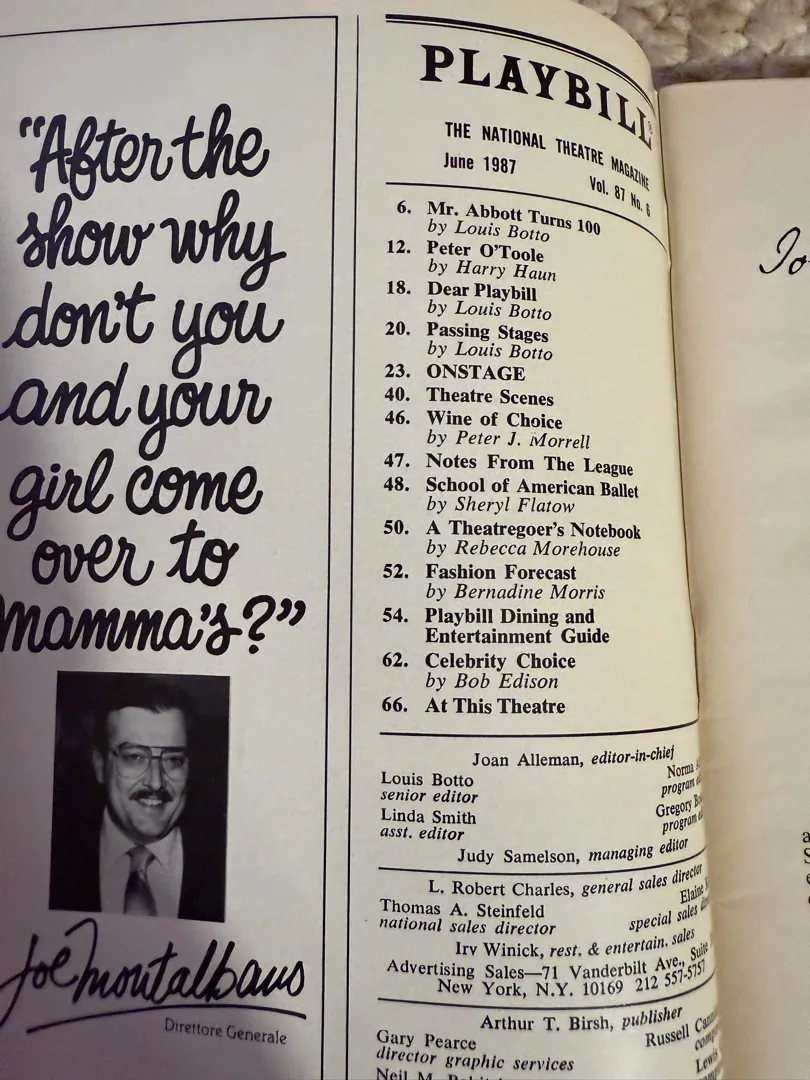 "After the
show why
don't you
and your
girl come
over to
mamma's?"
Joe Montalbano
Direttore Generale
PLAYBILL®
THE NATIONAL THEATRE MAGAZINE
June 1987 Vol. 87 No. 6
6. Mr. Abbott Turns 100
by Louis Botto
12. Peter O'Toole
by Harry Haun
18. Dear Playbill
by Louis Botto
20. Passing Stages
by Louis Botto
23. ONSTAGE
40. Theatre Scenes
46. Wine of Choice
by Peter J. Morrell
47. Notes From The League
48. School of American Ballet
by Sheryl Flatow
50. A Theatregoer's Notebook
by Rebecca Morehouse
52. Fashion Forecast
by Bernadine Morris
54. Playbill Dining and
Entertainment Guide
62. Celebrity Choice
by Bob Edison
66. At This Theatre
Joan Alleman, editor-in-chief
Louis Botto Norma
senior editor program
Linda Smith Gregory
asst. editor program
Judy Samelson, managing editor
L. Robert Charles, general sales director
Thomas A. Steinfeld Elaine
national sales director special sales
Irv Winick, rest. & entertain. sales
Advertising Sales—71 Vanderbilt Ave., Suite
New York, N.Y. 10169 212 557-5757
Arthur T. Birsh, publisher
Gary Pearce Russell
director graphic services
Neil M.